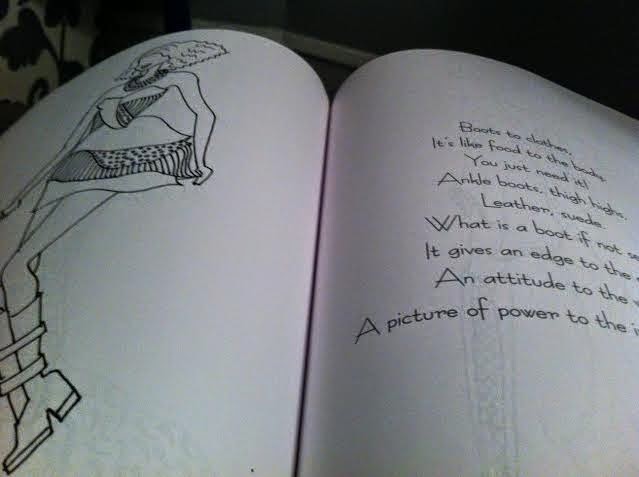 Boots to clothes,
It's like food to the body.
You just need it!
Ankle boots, thigh highs.
Leather, suede.
What is a boot if not
It gives an edge to the
An attitude to the
A picture of power to the